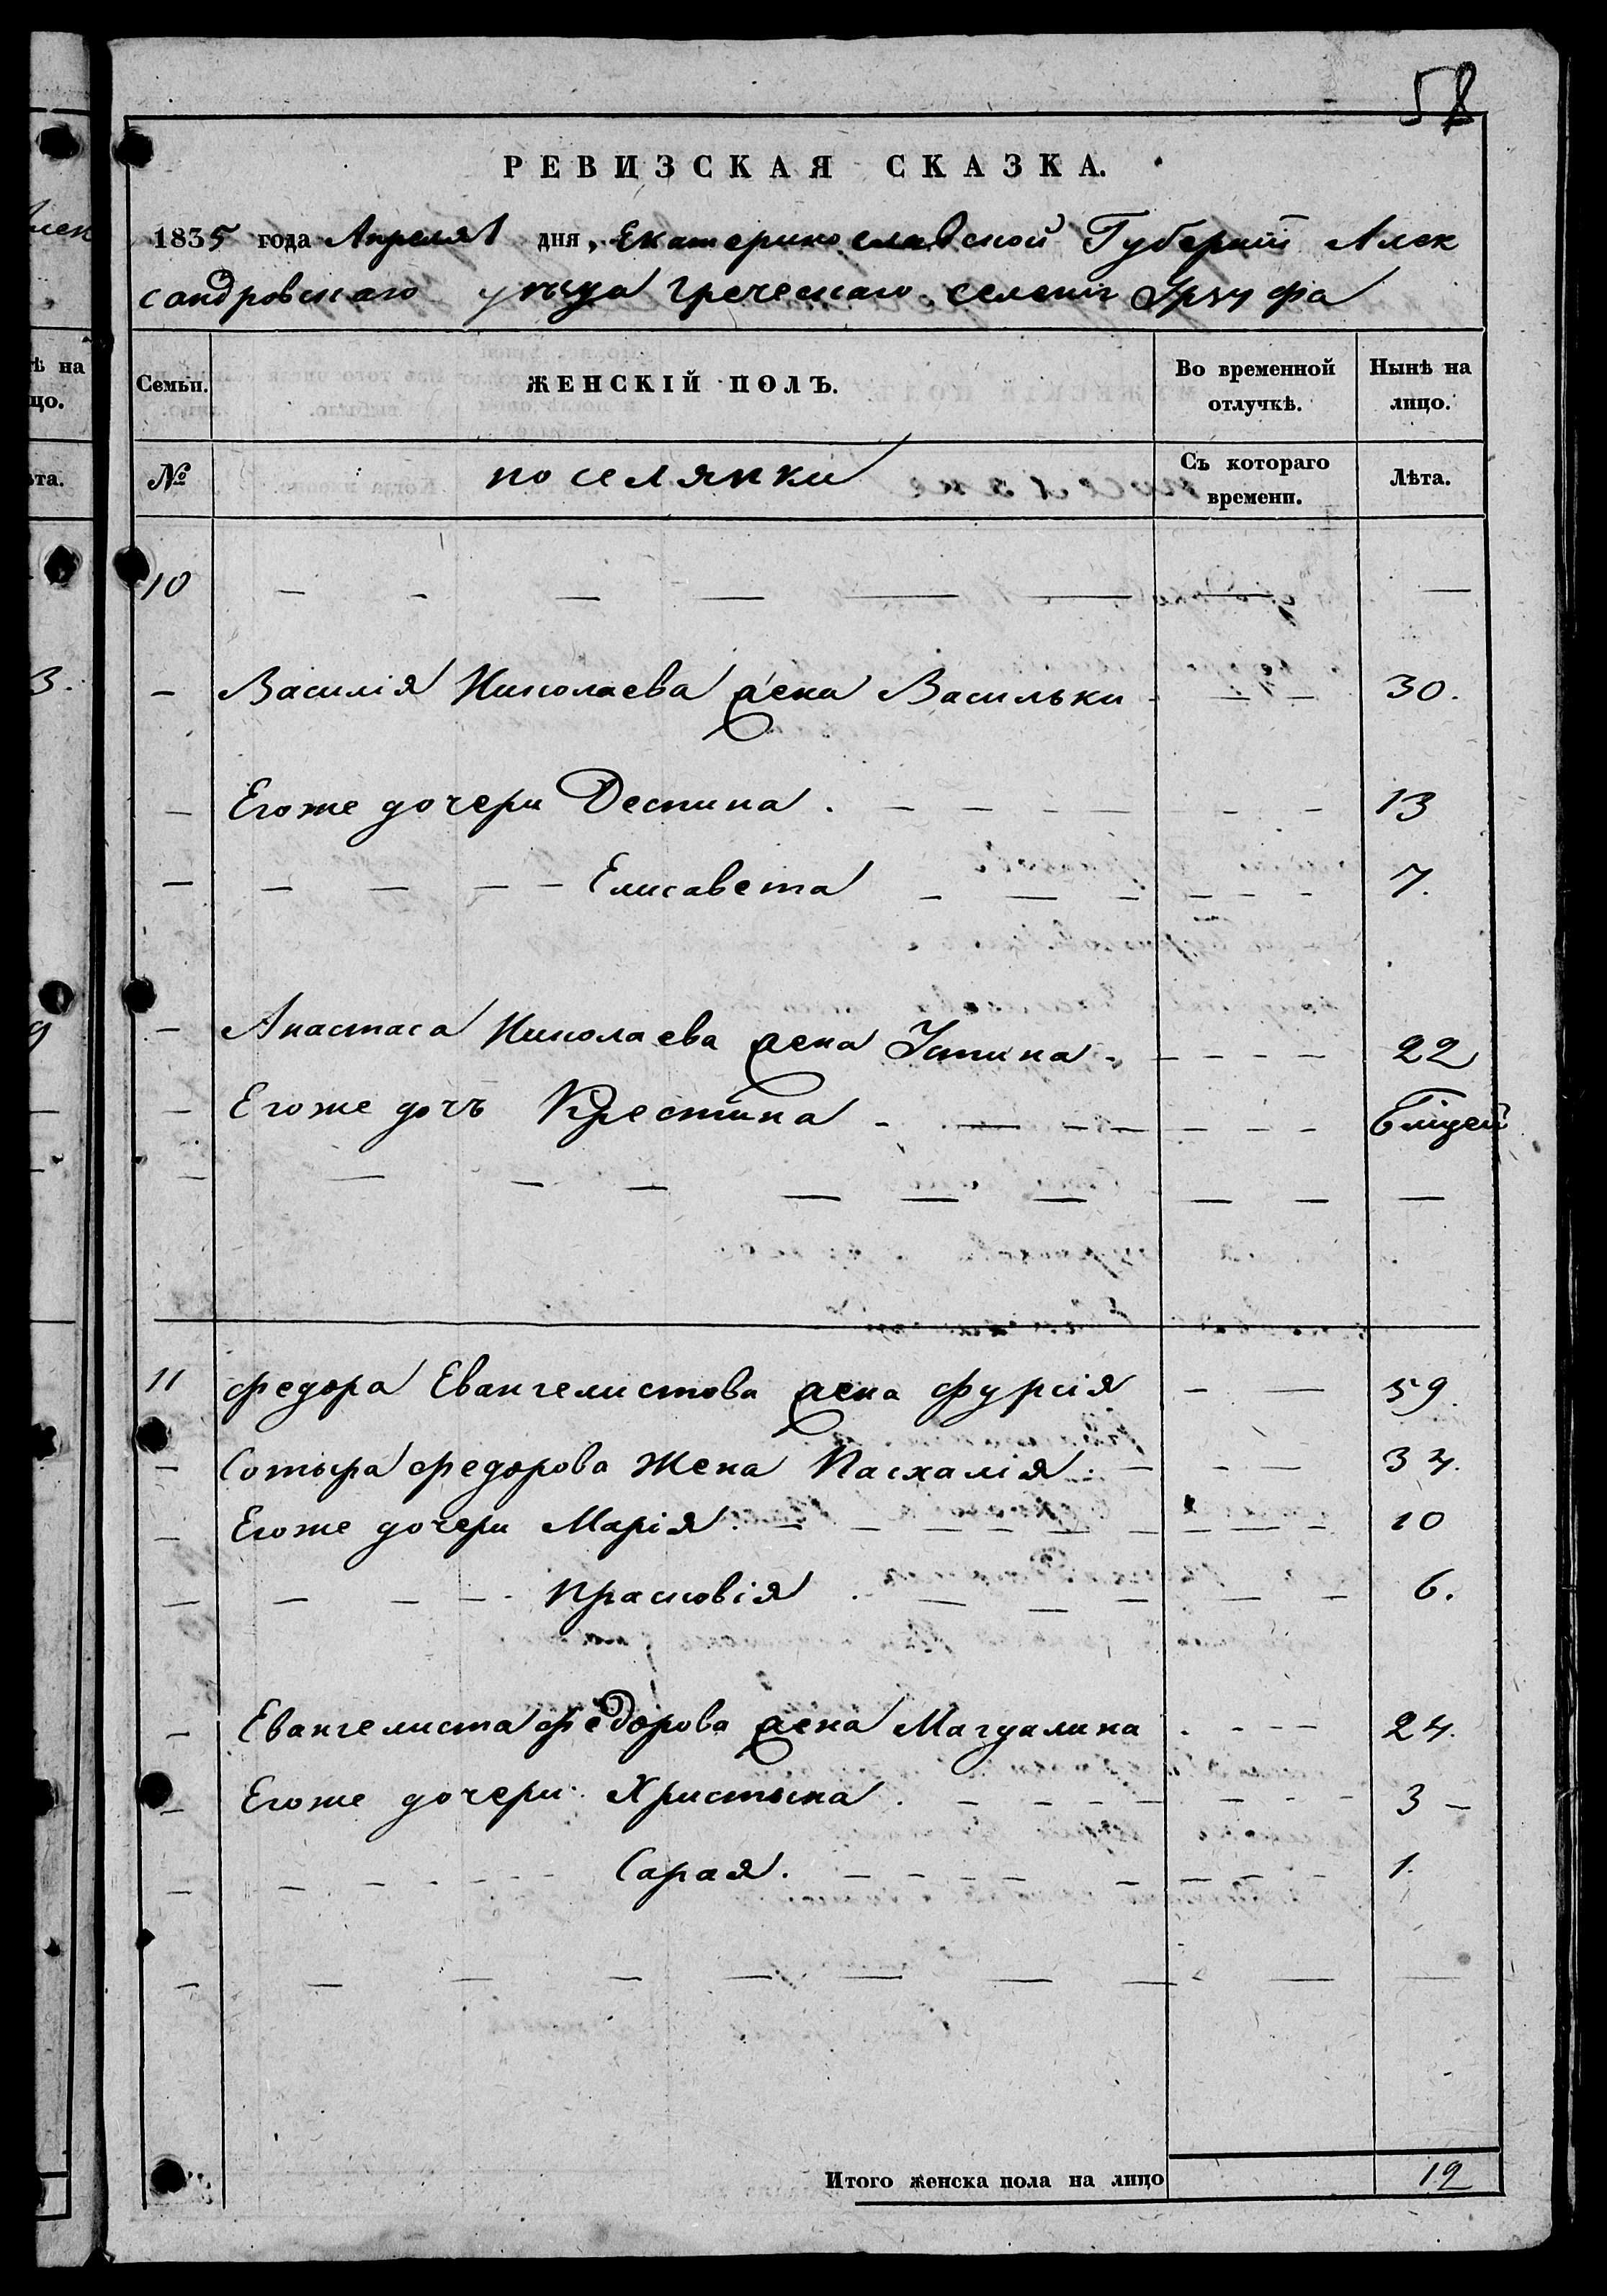 58
РЕВИЗСКАЯ СКАЗКА.
1835 года Апреля 1 дня, Екатеринославской Губернiи Алек
сандровскаго уѣзда греческаго селенiя Урзуфа
Семьи. ЖЕНСКІЙ ПОЛЪ. Во временной отлучкѣ. Нынѣ на лицо.
№ поселянки Съ котораго времени. Лѣта.
10 — — — — — — — —
— Василія Николаева жена Васильки - — — 30.
— Егоже дочери Деспина . — — — — — — 13
— — — — — Елисавета — — — — — — 7.
— Анастаса Николаева жена Устина - — — — — 22
— Егоже дочь Крестина - — — — — — — 6 мцей
— — — — — — — — — —
11 федора Евангелистова жена фурсія — — 59.
— Сотыра федорова жена Пасхалія . — — — 34.
— Егоже дочери Марія . — — — — — — — — 10
— — — — - Прасковія . — — — — — — 6.
— Евангелиста федорова жена Магдалина . - - - 24.
— Егоже дочери Христына . — — — — — — — — 3 —
— — — — — — Сарая . — — — — — — — — 1.
— — — — — — — — — —
Итого женска пола на лицо 12